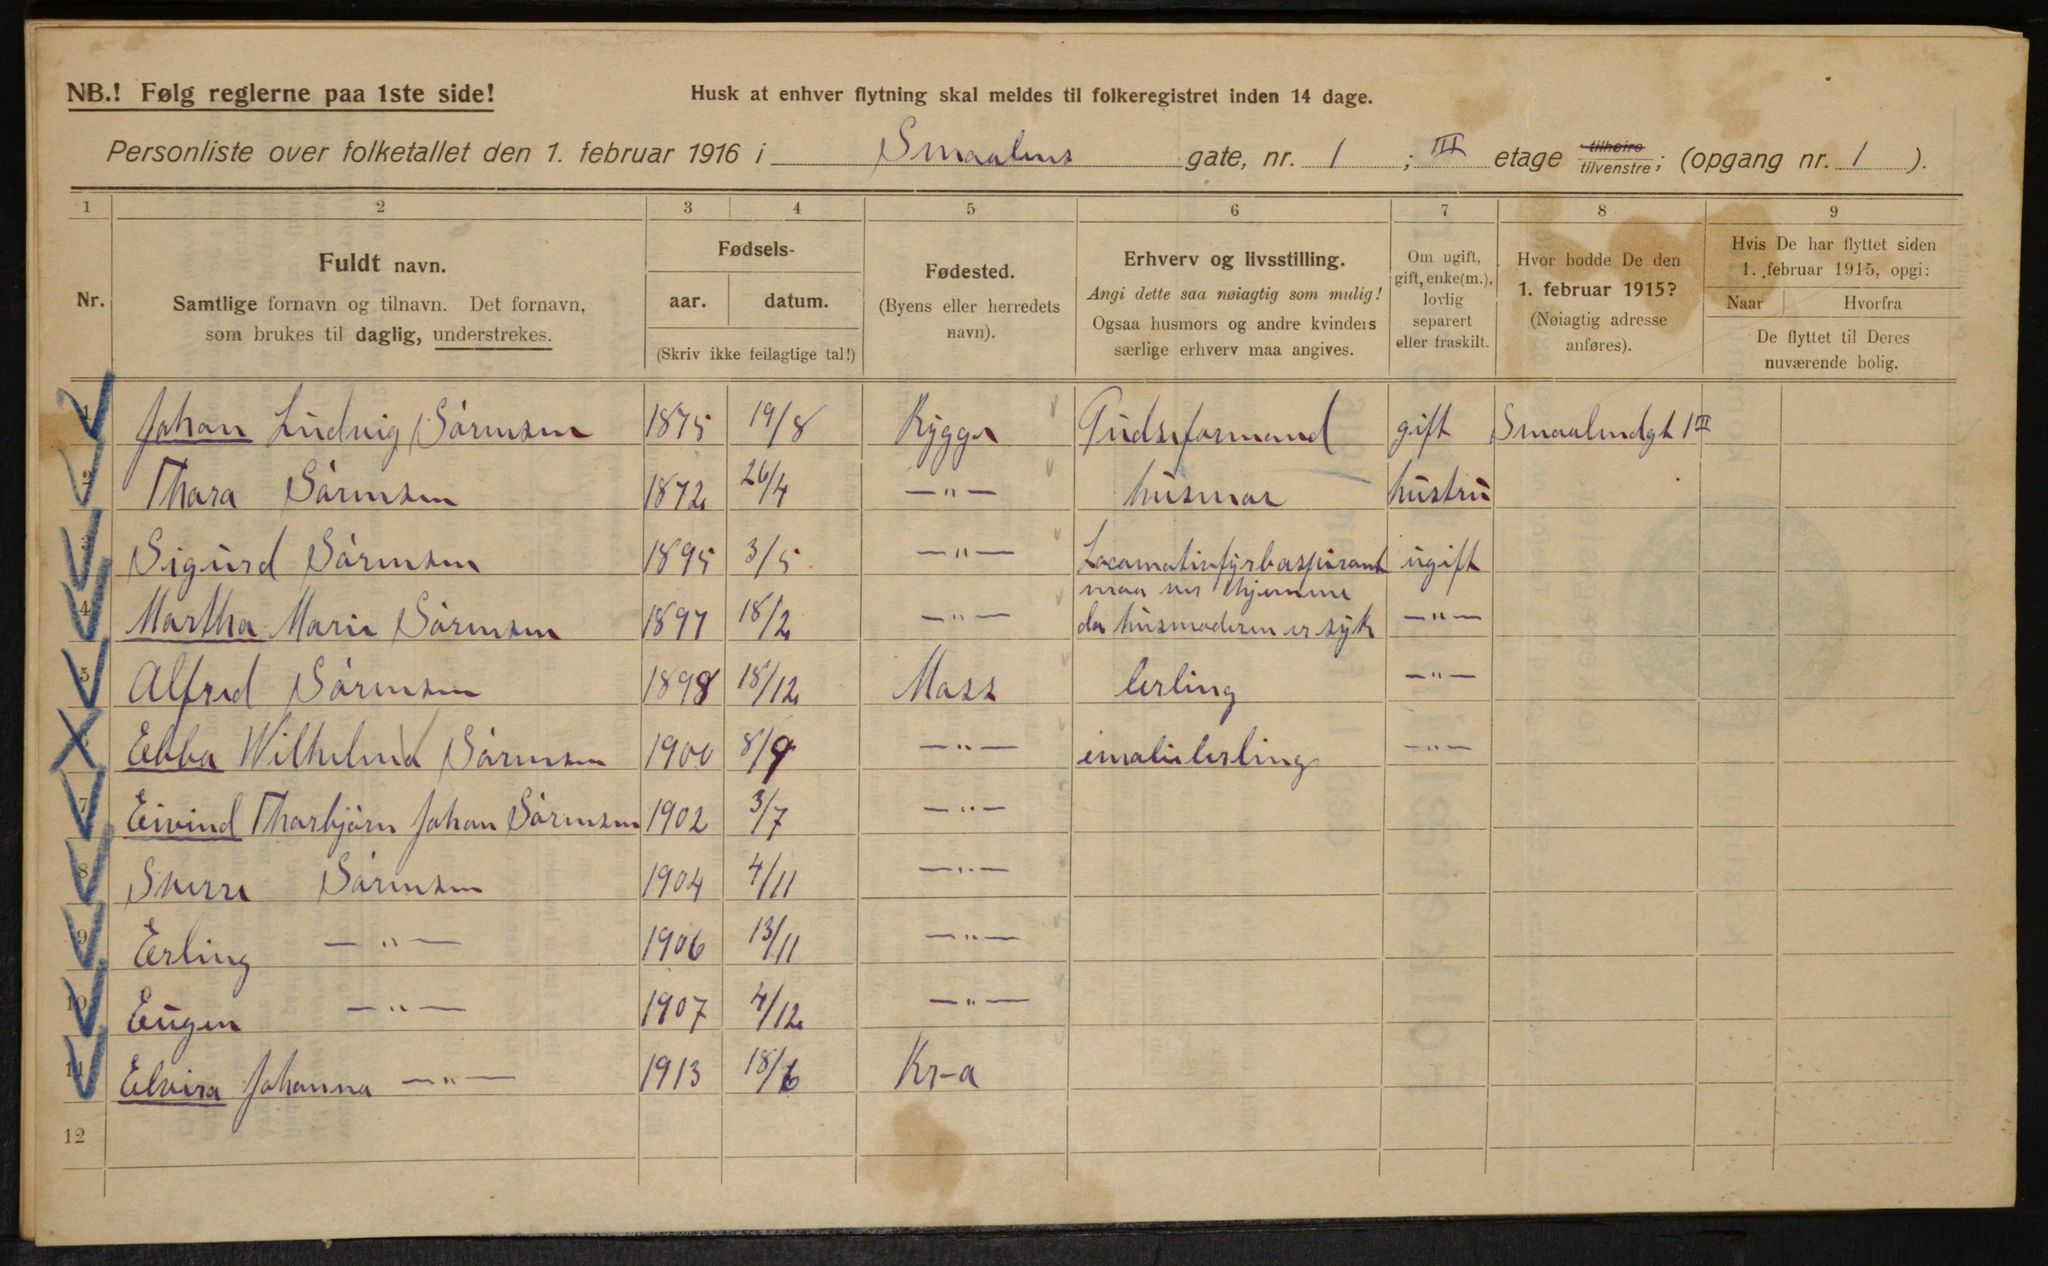 NB.! Følg reglerne paa 1ste side!
Husk at enhver flytning skal meldes til folkeregistret inden 14 dage.
Personliste over folketallet den 1. februar 1916 i Smaalens gate, nr. 1 ; III etage tilhøire tilvenstre; (opgang nr. 1 ).
1 2 3 4 5 6 7 8 9
Nr.
Fuldt navn.
Samtlige fornavn og tilnavn. Det fornavn,
som brukes til daglig, understrekes.
Fødsels-
aar. datum.
(Skriv ikke feilagtige tal!)
Fødested.
(Byens eller herredets
navn).
Erhverv og livsstilling.
Angi dette saa nøiagtig som mulig!
Ogsaa husmors og andre kvinders
særlige erhverv maa angives.
Om ugift,
gift, enke(m.),
lovlig
separert
eller fraskilt.
Hvor bodde De den
1. februar 1915?
(Nøiagtig adresse
anføres).
Hvis De har flyttet siden
1. februar 1915, opgi:
Naar Hvorfra
De flyttet til Deres
nuværende bolig.
1 Johan Ludvig Sørensen 1875 19/8 Rygge Gudsformand gift Smaalensgt 1 III
2 Thora Sørensen 1872 26/4 —"— husmor hustru
3 Sigurd Sørensen 1895 3/5 —"— Locomotivfyrbaspirant ugift
4 Martha Marie Sørensen 1897 18/2 —"— maa være hjemme
da husmoderen er syk —"—
5 Alfred Sørensen 1898 18/12 Moss lerling —"—
6 Ebba Wilhelma Sørensen 1900 8/9 —"— emalielerling —"—
7 Eivind Thorbjørn Johan Sørensen 1902 3/7 —"—
8 Sverre Sørensen 1904 4/11 —"—
9 Erling —"— 1906 13/11 —"—
10 Eugen —"— 1907 4/12 —"—
11 Elvira Johanna —"— 1913 18/6 Kr-a
12